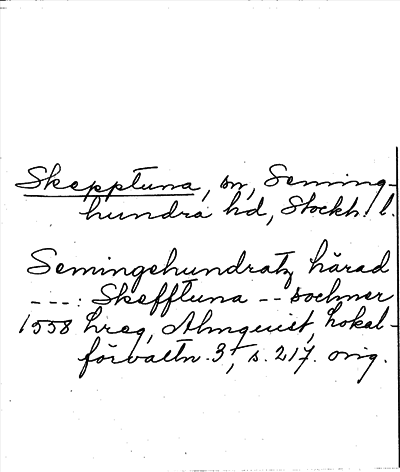 Skepptuna, sn, Seming-
hundra hd, Stockh. l.
Semingehundratz härad
---: Skefftuna -- sochner
1558 hreg, Almquist, Lokal-
förvaltn. 3, s. 217. orig.